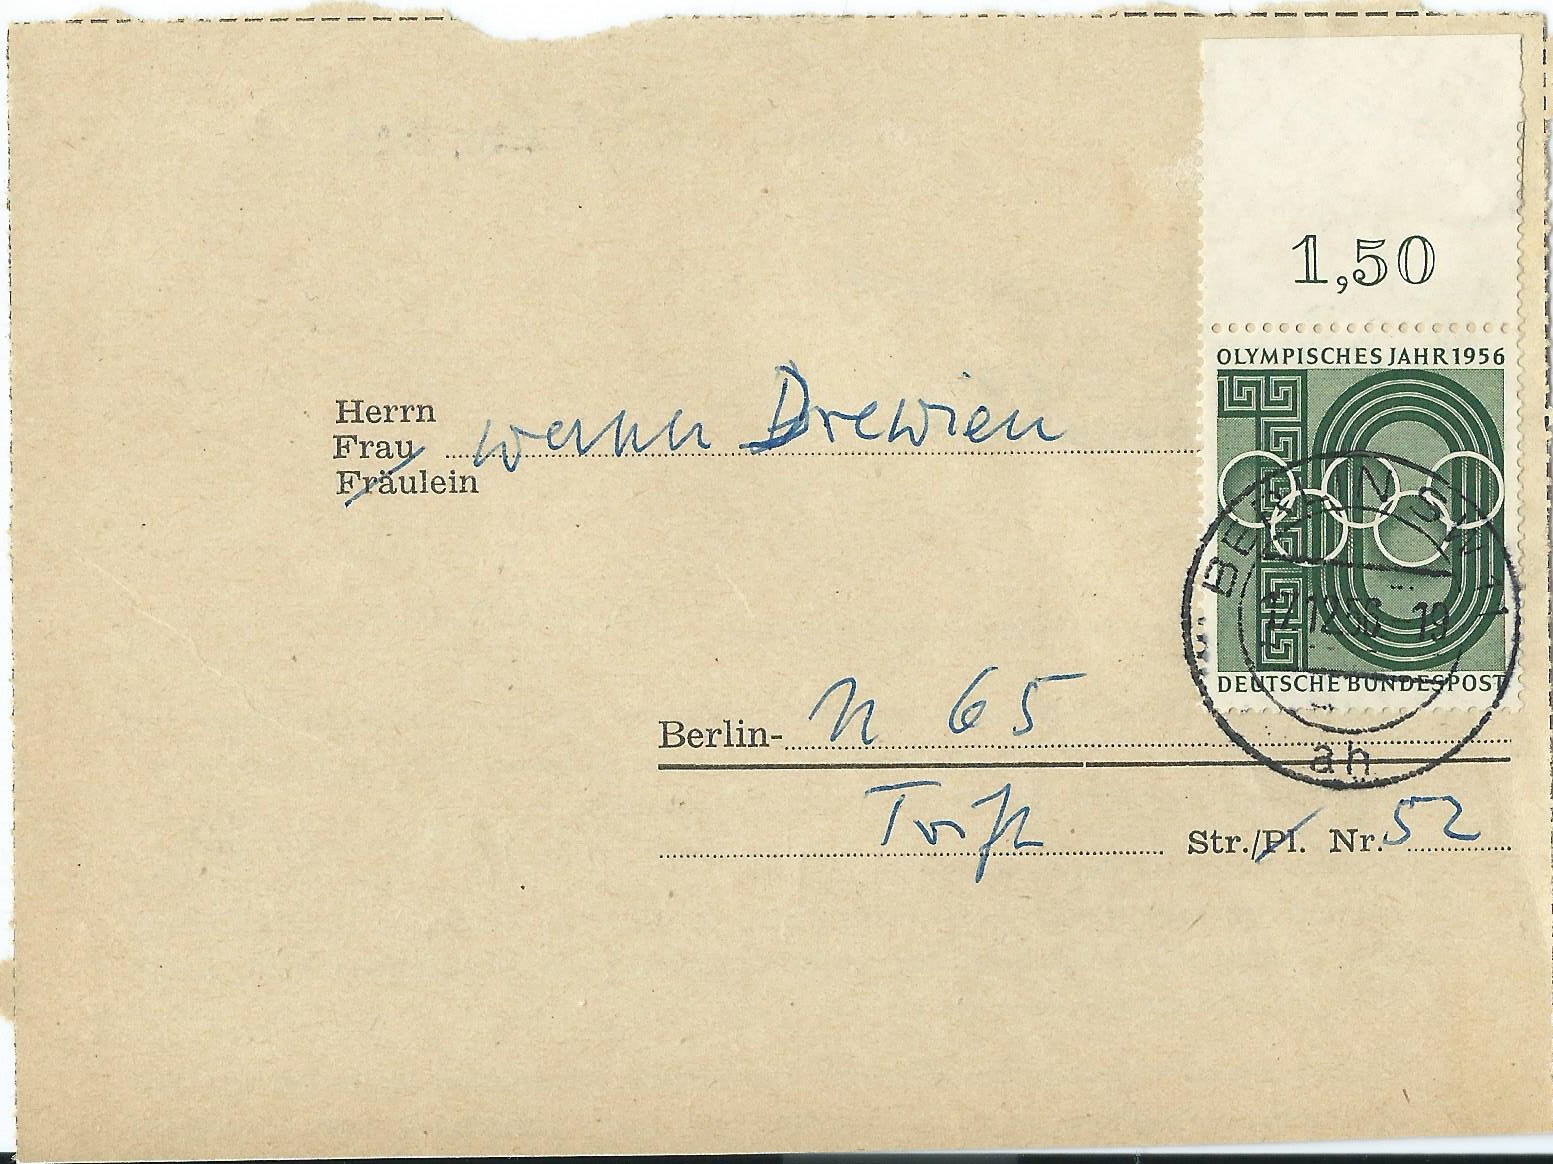 1,50
OLYMPISCHES JAHR 1956
Herrn
Frau
Fräulein
Werner Drewien
BERLIN SW 11
12.12.56 19
DEUTSCHE BUNDESPOST
Berlin- N 65
ah
Trift Str./Pl. Nr. 52